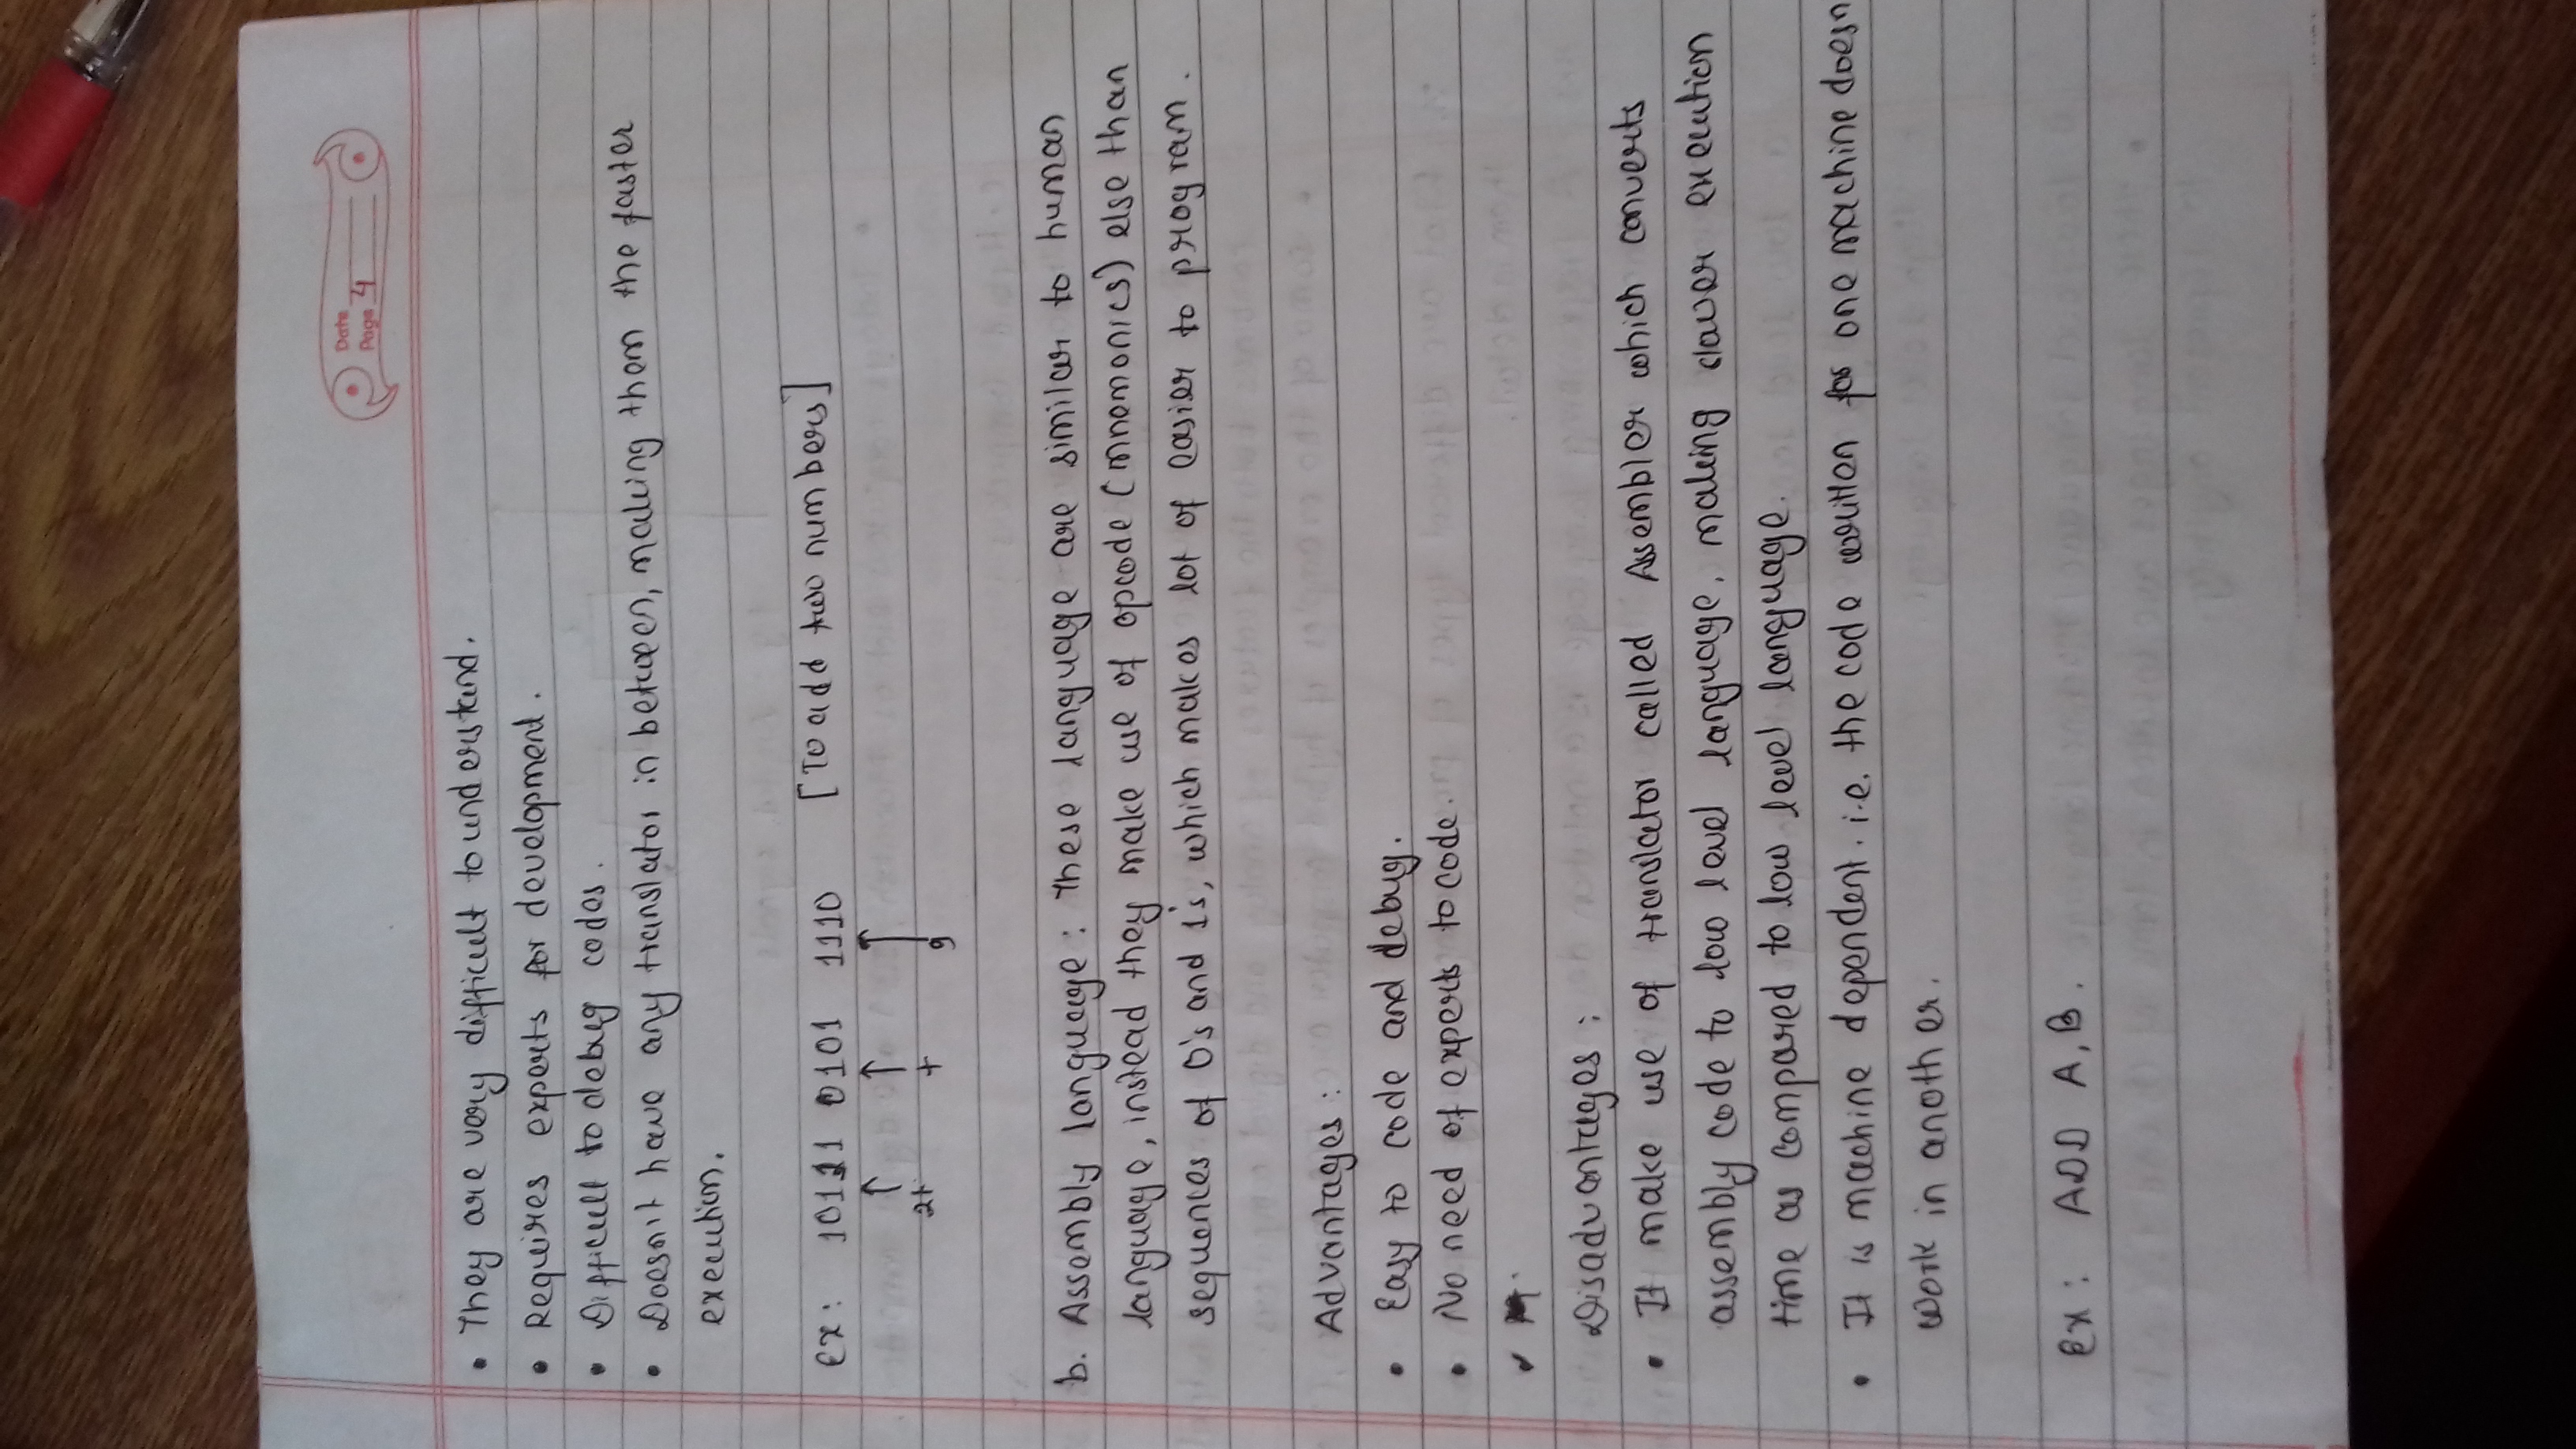 Date
Page 4
• They are very difficult to understand.
• Requires experts for development.
• Difficult to debug codes.
• Doesn't have any translator in between, making them the faster
execution.
Ex: 10111 0101 1110 [To add two numbers]
↑ ↑ ↑
+ 9
b. Assembly language: These language are similar to human
language, instead they make use of opcode (mnemonics) else than
sequences of 0's and 1's, which makes lot of easier to program.
Advantages:
• Easy to code and debug.
• No need of experts to code.
Disadvantages:
• It make use of translator called Assembler which converts
assembly code to low level language, making execution
time as compared to low level language.
• It is machine dependent. i.e. the code written for one machine doesn
work in another.
Ex: ADD A,B.